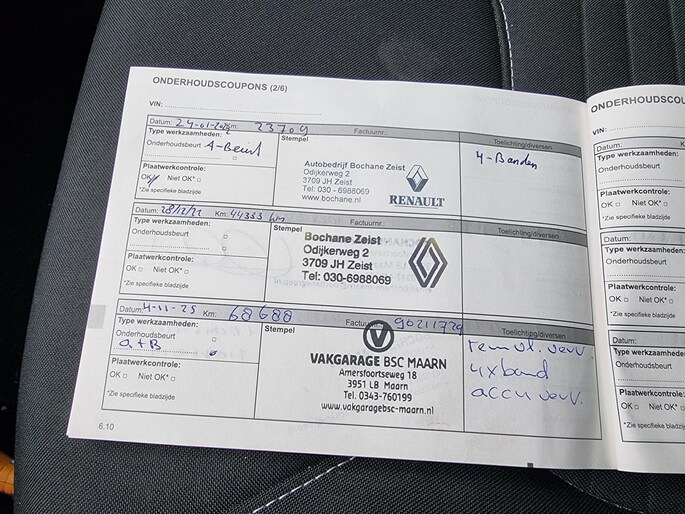 ONDERHOUDSCOUPONS (2/6)
VIN:
Datum: 24-01-2022 Km: 23709 Factuurnr.:
Type werkzaamheden: Stempel Toelichting/diversen
Onderhoudsbeurt A-Beurt
4-Banden
Plaatwerkcontrole:
OK Niet OK*
*Zie specifieke bladzijde
Autobedrijf Bochane Zeist
Odijkerweg 2
3709 JH Zeist
Tel: 030 - 6988069
www.bochane.nl
RENAULT
Datum: 28/12/22 Km: 44333 km Factuurnr.:
Type werkzaamheden: Stempel Toelichting/diversen
Onderhoudsbeurt
Plaatwerkcontrole:
OK Niet OK*
*Zie specifieke bladzijde
Bochane Zeist
Odijkerweg 2
3709 JH Zeist
Tel: 030-6988069
Datum: 4-11-25 Km: 68688 Factuurnr.: 90211729
Type werkzaamheden: Stempel Toelichting/diversen
Onderhoudsbeurt
a+B
Plaatwerkcontrole:
OK Niet OK*
*Zie specifieke bladzijde
V
VAKGARAGE BSC MAARN
Amersfoortseweg 18
3951 LB Maarn
Tel. 0343-760199
www.vakgaragebsc-maarn.nl
remvl. verv.
4xband
accu verv.
6.10
ONDERHOUDSCOU
VIN:
Datum:
Type werkzaamheden:
Onderhoudsbeurt
Plaatwerkcontrole:
OK Niet OK*
*Zie specifieke bladzijde
Datum:
Type werkzaamhe
Onderhoudsbeurt
Plaatwerkcontrole
OK Niet OK*
*Zie specifieke bladz
Datum:
Type werkzaam
Onderhoudsbeur
Plaatwerkcontr
OK Niet OK
*Zie specifieke bla